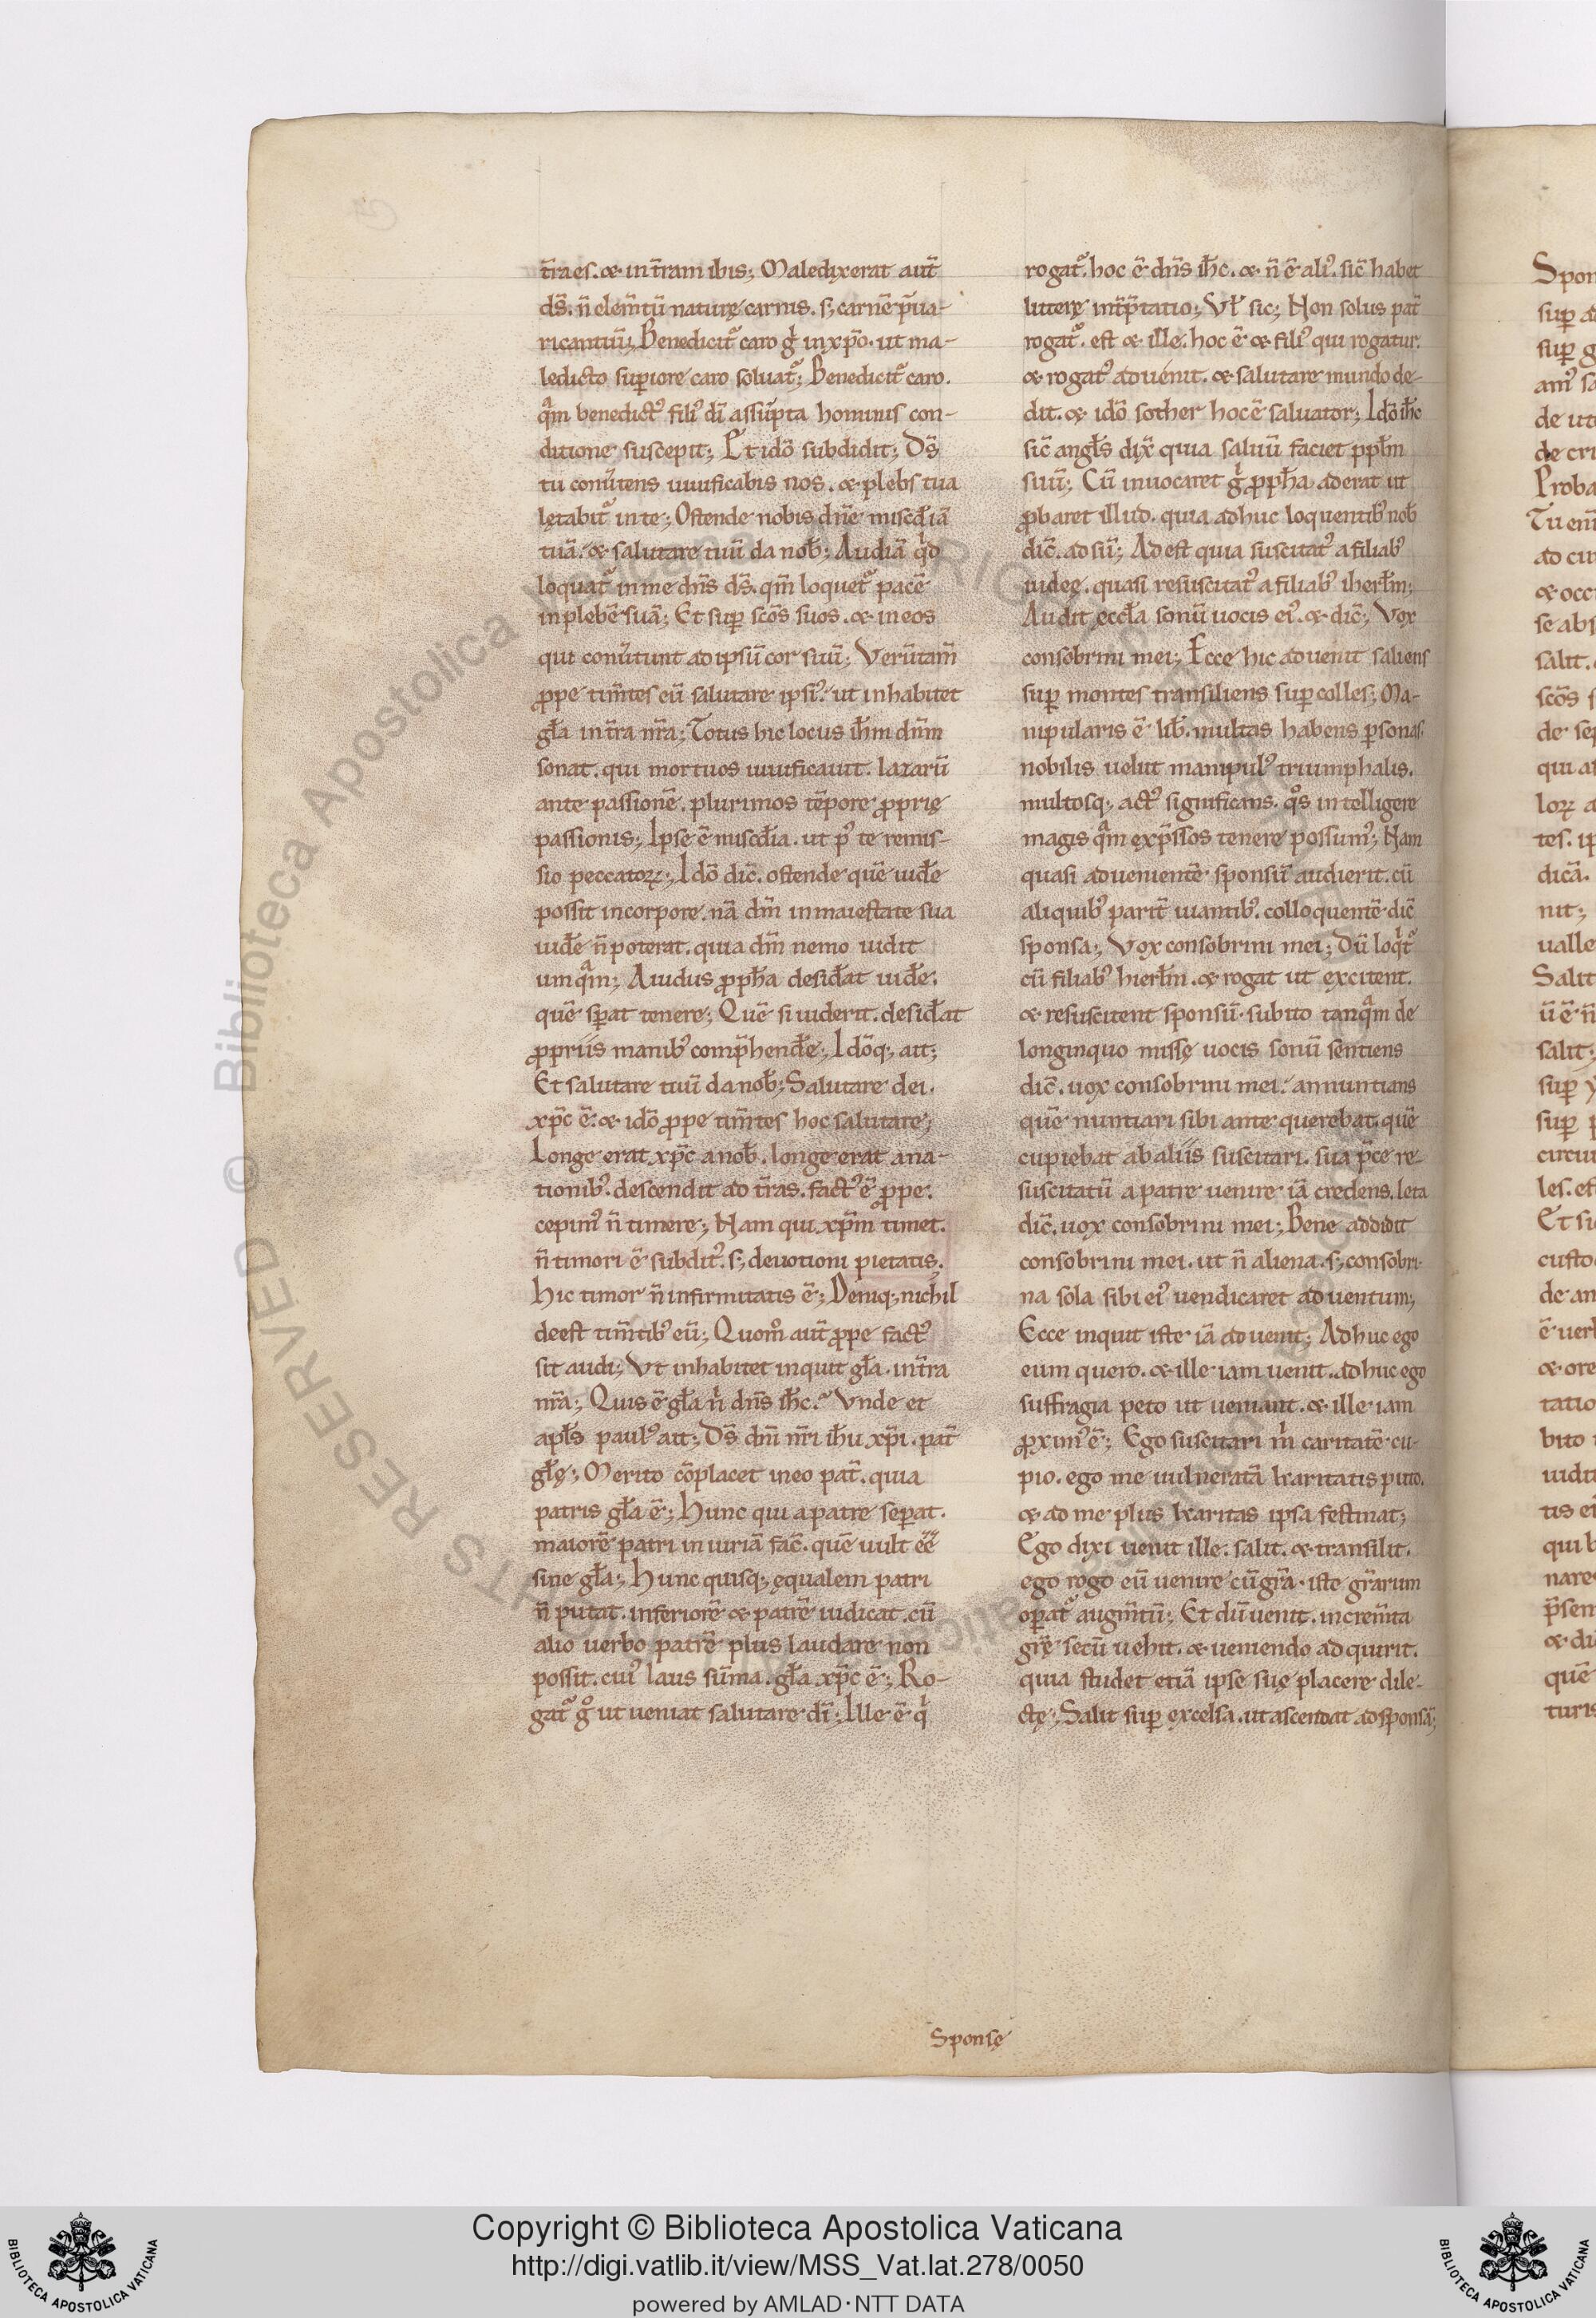 t̄raes. & in t̄ram ibis; Maledixerat aut̄
ds̄. n̄ elem̄tū naturę carnis. s; carnē p̄ua-
ricantiū; Benedicit᷑ caro gͥ in xp̄o. ut ma-
ledicto superiore caro soluat᷑; Benedicit᷑ caro.
qͣm benedict᷒ fili᷒ dī assūpta hominis con-
ditione suscepit; Et idō subdidit; Ds̄
tu conūtens uiuificabis nos. & plebs tua
lętabit᷑ in te; Ostende nobis dn̄e misc̄dia
tuā. & salutare tuū da nob̄; Audiā qͥd
loquat᷑ in me dn̄s ds̄. qm̄ loquet᷑ pacē
in plebē suā; Et sup̲ sc̄os suos. & in eos
qui conūtunt ad ipsū cor suū; Verūtam̄
ꝓpe tim̄tes eū salutare ipsi᷒. ut inhabitet
gl̄a in t̄ra nr̄a; Totus hic locus ih̄m dn̄m
sonat. qui mortuos uiuificauit. lazarū
ante passionē. plurimos tēpore ꝓprię
passionis; Ipse ē misc̄dia. ut p᷒ te remis-
sio peccatoꝝ; Idō dic̄. ostende quē uid̄e
possit in corpore. nā dm̄ in maiestate sua
uid̄e n̄ poterat. quia dm̄ nemo uidit
umqͣm; Auidus ꝓph̄a desid̄at uid̄e.
quē sꝑat tenere; Quē si uiderit. desid̄at
ꝓpriis manib᷒ comp̄hend̄e; Idōq; ait;
Et salutare tuū da nob̄; Salutare dei.
xp̄c ē. & idō ꝓpe tim̄tes hoc salutare;
Longe erat xp̄c a nob̄. longe erat a na-
tionib᷒. descendit ad t̄ras. fact᷒ ē ꝓpe.
cepim᷒ n̄ timere; Nam qui xp̄m timet.
n̄ timori ē subdit᷒. s; deuotioni pietatis.
Hic timor n̄ infirmitatis ē; Deniq; nichil
deest tim̄tib᷒ eū; Quom̊ aut̄ ꝓpe fact᷒
sit audi; Vt inhabitet inquit gl̄a. in t̄ra
nr̄a; Quis ē gl̄a nͥ dn̄s ih̄c? Vnde et
apl̄s paul᷒ ait; Ds̄ dn̄i nr̄i ih̄u xp̄i. pat̄
gl̄ę; Merito cōplacet in eo pat̄. quia
patris gl̄a ē; Hunc qui a patre seꝑat.
maiorē patri iniuriā fac̄. quē uult eē̄
sine gl̄a; Hunc quisq; ęqualem patri
n̄ putat. inferiorē & patrē iudicat. cū
alio uerbo patrē plus laudare non
possit. cui᷒ laus sūma. gl̄a xp̄c ē; Ro-
gat᷑ g̊ ut ueniat salutare dī; Ille ē qͥ
rogat᷑. hoc ē dn̄s ih̄c. & n̄ ē ali᷒. sic̄ habet
litterę int̄p̄tatio; Vl̄ sic; Non solus pat̄
rogat᷑. est & ille. hoc ē & fili᷒ qui rogatur.
& rogat᷒ aduenit. & salutare mundo de-
dit. & idō sother hoc ē saluator; Idō ih̄c
sic̄ angl̄s dix̄ quia saluū faciet ppl̄m
suū; Cū inuocaret gͥ ꝓph̄a aderat ut
ꝓbaret illud. quia adhuc loquentib᷒ nob̄
dic̄. adsū; Adest quia suscitat᷒ a filiab᷒
iudeę. quasi resuscitat᷒ a filiab᷒ iherl̄m;
Audit ęccl̄a sonū uocis ei᷒. & dic̄; Vox
consobrini mei; Ecce hic aduenit saliens
sup̲ montes transiliens sup̲ colles; Ma-
nipularis ē lib̄. multas habens ꝑsonas.
nobilis uelut manipul᷒ triumphalis.
multosq; act᷒ significans. qͦs intelligere
magis qͣm exp̄ssos tenere possum᷒; Nam
quasi aduenientē sponsū audierit. cū
aliquib᷒ parit̄ uiantib᷒. colloquentē dic̄
sponsa; Vox consobrini mei; Dū loqͥt᷑
cū filiab᷒ hierl̄m. & rogat ut excitent.
& resuscitent sponsū. subito tanqͣm de
longinquo missę uocis sonū sentiens
dic̄. uox consobrini mei. annuntians
quē nuntiari sibi ante querebat. quē
cupiebat ab aliis suscitari. sua p̄ce re-
suscitatū a patre uenire iā credens. leta
dic̄. uox consobrini mei; Bene addidit
consobrini mei. ut n̄ aliena. s; consobri-
na sola sibi ei᷒ uendicaret aduentum;
Ecce inquit iste iā aduenit; Adhuc ego
eum quero. & ille iam uenit. adhuc ego
suffragia peto ut ueniant. & ille iam
ꝓxim᷒ ē; Ego suscitari mͥ caritatē cu-
pio. ego me uulneratā karitatis puto.
& ad me plus karitas ipsa festinat;
Ego dixi uenit ille. salit. & transilit.
ego rogo eū uenire cū gr̄a. iste gr̄arum
oꝑat᷑ augm̄tū; Et dū uenit. increm̄ta
gr̄ę secū uehit. & ueniendo adquirit.
quia studet etiā ipse suę placere dile-
ctę; Salit sup̲ excelsa. ut ascendat ad sponsā;
Sponsę
Copyright © Biblioteca Apostolica Vaticana
http://digi.vatlib.it/view/MSS_Vat.lat.278/0050
powered by AMLAD·NTT DATA
BIBLIOTECA APOSTOLICA VATICANA
BIBLIOTECA APOSTOLICA VATICANA